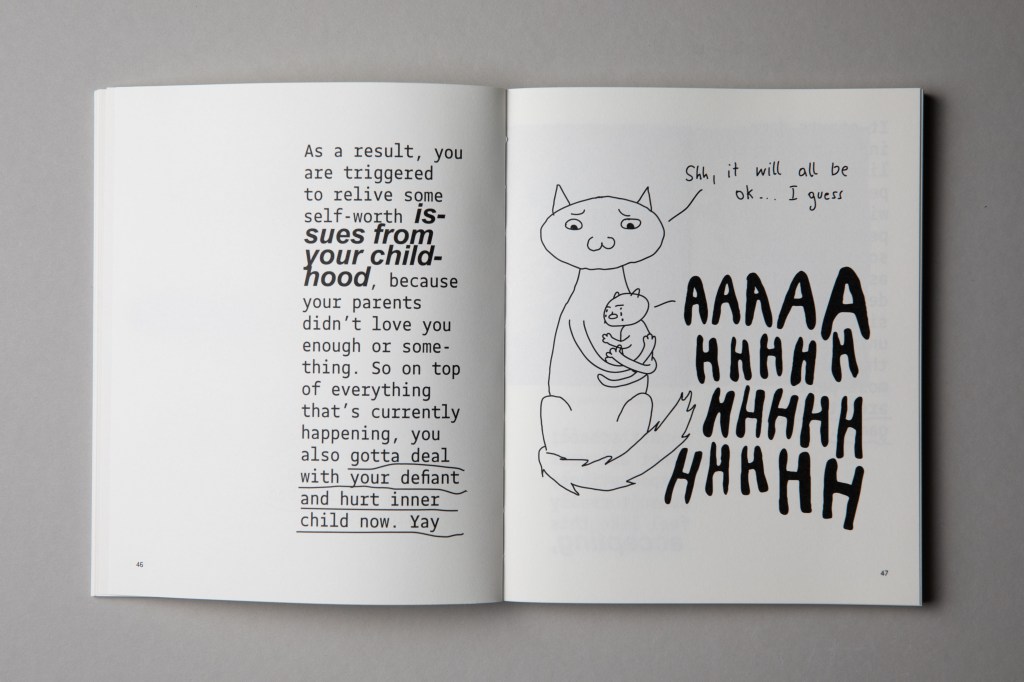 As a result, you
are triggered
to relive some
self-worth is-
sues from
your child-
hood, because
your parents
didn't love you
enough or some-
thing. So on top
of everything
that's currently
happening, you
also gotta deal
with your defiant
and hurt inner
child now. Yay
46
Shh, it will all be
ok... I guess
AAAAA
HHHHH
HHHHH
HHHHH
47